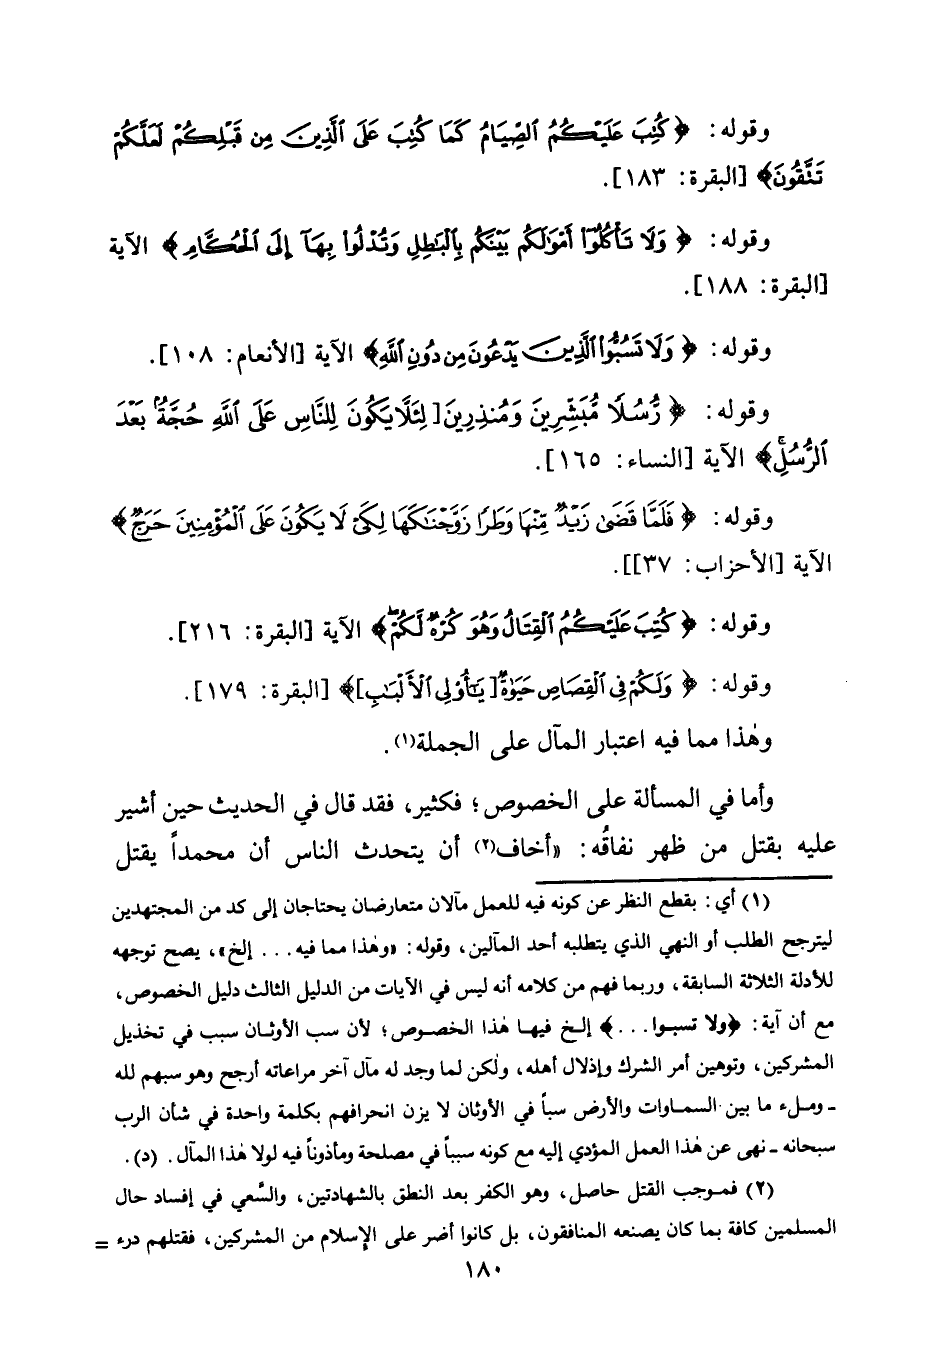 وقوله: ﴿ كُتِبَ عَلَيْكُمُ الصِّيَامُ كَمَا كُتِبَ عَلَى الَّذِينَ مِن قَبْلِكُمْ لَعَلَّكُمْ
تَتَّقُونَ﴾ [البقرة: ١٨٣].
وقوله: ﴿ وَلَا تَأْكُلُوٓا أَمْوَٰلَكُم بَيْنَكُم بِالْبَٰطِلِ وَتُدْلُوا بِهَآ إِلَى الْحُكَّامِ ﴾ الآية
[البقرة: ١٨٨].
وقوله: ﴿ وَلَا تَسُبُّوا الَّذِينَ يَدْعُونَ مِن دُونِ اللَّهِ﴾ الآية [الأنعام: ١٠٨].
وقوله: ﴿ رُّسُلًا مُّبَشِّرِينَ وَمُنذِرِينَ[ لِئَلَّا يَكُونَ لِلنَّاسِ عَلَى اللَّهِ حُجَّةٌۢ بَعْدَ
الرُّسُلِ﴾ الآية [النساء: ١٦٥].
وقوله: ﴿ فَلَمَّا قَضَىٰ زَيْدٌ مِّنْهَا وَطَرًا زَوَّجْنَٰكَهَا لِكَيْ لَا يَكُونَ عَلَى الْمُؤْمِنِينَ حَرَجٌ ﴾
الآية [الأحزاب: ٣٧]].
وقوله: ﴿ كُتِبَ عَلَيْكُمُ الْقِتَالُ وَهُوَ كُرْهٌ لَّكُمْ﴾ الآية [البقرة: ٢١٦].
وقوله: ﴿ وَلَكُمْ فِي الْقِصَاصِ حَيَوٰةٌ[ يَٰٓأُوْلِي الْأَلْبَٰبِ]﴾ [البقرة: ١٧٩].
وهٰذا مما فيه اعتبار المآل على الجملة(١).
وأما في المسألة على الخصوص؛ فكثير، فقد قال في الحديث حين أشير
عليه بقتل من ظهر نفاقُه: «أخاف(٢) أن يتحدث الناس أن محمداً يقتل
(١) أي: بقطع النظر عن كونه فيه للعمل مآلان متعارضان يحتاجان إلى كد من المجتهدين
ليترجح الطلب أو النهي الذي يتطلبه أحد المآلين، وقوله: «وهٰذا مما فيه... إلخ»، يصح توجهه
للأدلة الثلاثة السابقة، وربما فهم من كلامه أنه ليس في الآيات من الدليل الثالث دليل الخصوص،
مع أن آية: ﴿ولا تسبوا...﴾ إلخ فيها هٰذا الخصوص؛ لأن سب الأوثان سبب في تخذيل
المشركين، وتوهين أمر الشرك وإذلال أهله، ولٰكن لما وجد له مآل آخر مراعاته أرجح وهو سبهم لله
ـ وملء ما بين السماوات والأرض سباً في الأوثان لا يزن انحرافهم بكلمة واحدة في شأن الرب
سبحانه ـ نهى عن هٰذا العمل المؤدي إليه مع كونه سبباً في مصلحة ومأذوناً فيه لولا هٰذا المآل. (د).
(٢) فموجب القتل حاصل، وهو الكفر بعد النطق بالشهادتين، والسَّعي في إفساد حال
المسلمين كافة بما كان يصنعه المنافقون، بل كانوا أضر على الإسلام من المشركين، فقتلهم درء =
١٨٠